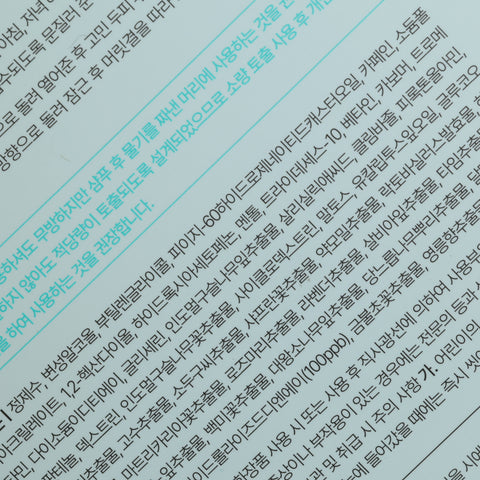 아침, 저녁
으로 돌려 열어주 후 고민 두피
방향으로 돌려 잠근 후 머릿결을 따라
사용하셔도 무방하지만 샴푸 후 물기를 짜낸 머리에 사용하는 것을
하지 않아도 적당량이 토출되도록 설계되었으므로 소량 토출 사용 후 개인
을 하여 사용하는 것을 권장합니다.
정제수, 변성알코올, 부틸렌글라이콜, 피이지-60하이드로제네이티드캐스터오일, 카페인, 소듐폴
아크릴레이트, 1,2-헥산다이올, 하이드록시아세토페논, 멘톨, 트라이데세스-10, 베타인, 카보머, 트로메
타민, 다이소듐이디티에이, 글리세린, 인도멀구슬나무잎추출물, 살리실릭애씨드, 클림바졸, 피록톤올아민,
판테놀, 덱스트린, 인도멀구슬나무꽃추출물, 사이클로덱스트린, 말토스, 유칼립투스잎오일, 글루코오
추출물, 고수추출물, 소두구씨추출물, 사프란꽃추출물, 약모밀추출물, 락토바실러스발효물,
마트리카리아꽃추출물, 로즈마리추출물, 라벤더추출물, 살비아잎추출물, 타임추출물
잎추출물, 백미꽃추출물, 대왕소나무잎추출물, 당느릅나무뿌리추출물,
하이드롤라이즈드디엔에이(100ppb), 금불초꽃추출물, 영릉향추출물
화장품 사용 시 또는 사용 후 직사광선에 의하여 사용부위
증상이나 부작용이 있는 경우에는 전문의 등과
관 및 취급 시 주의 사항 가. 어린이의
눈에 들어갔을 때에는 즉시 씻어